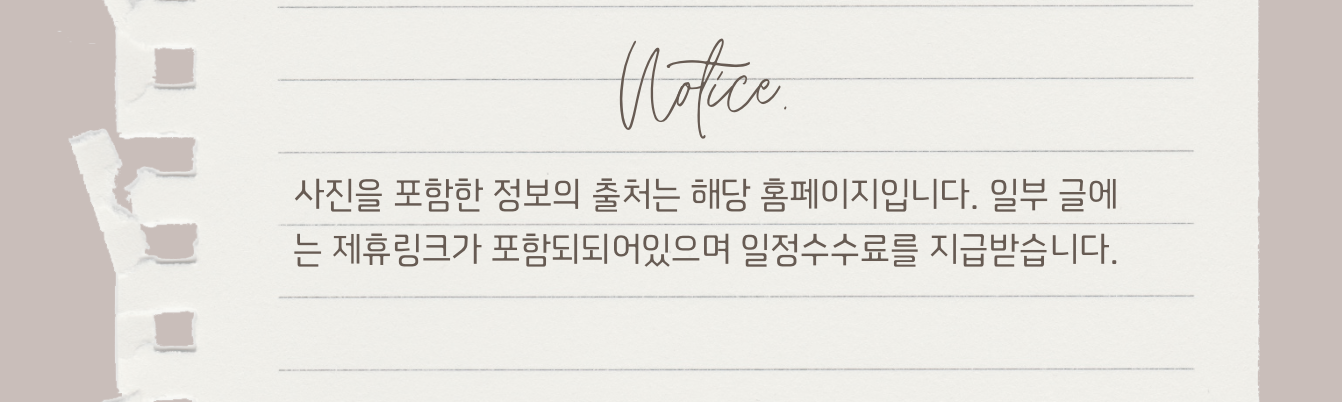 Notice.
사진을 포함한 정보의 출처는 해당 홈페이지입니다. 일부 글에
는 제휴링크가 포함되되어있으며 일정수수료를 지급받습니다.